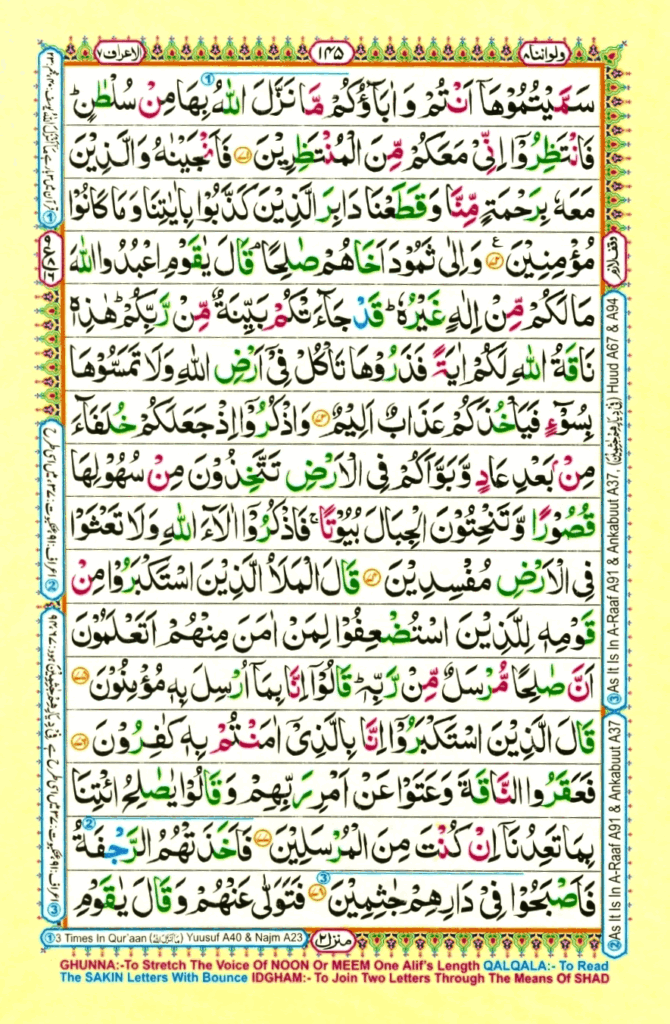 ولواننا ٨
١٤٥
الاعراف ٧
سَمَّيْتُمُوْهَاۤ اَنْتُمْ وَ اٰبَآؤُكُمْ مَّا نَزَّلَ اللّٰهُ بِهَا مِنْ سُلْطٰنٍ ؕ
فَانْتَظِرُوْۤا اِنِّیْ مَعَكُمْ مِّنَ الْمُنْتَظِرِیْنَ ۝ فَاَنْجَیْنٰهُ وَ الَّذِیْنَ
مَعَهٗ بِرَحْمَةٍ مِّنَّا وَ قَطَعْنَا دَابِرَ الَّذِیْنَ كَذَّبُوْا بِاٰیٰتِنَا وَ مَا كَانُوْا
مُؤْمِنِیْنَ ۝ وَ اِلٰی ثَمُوْدَ اَخَاهُمْ صٰلِحًا ۘ قَالَ یٰقَوْمِ اعْبُدُوا اللّٰهَ
مَا لَكُمْ مِّنْ اِلٰهٍ غَیْرُهٗ ؕ قَدْ جَآءَتْكُمْ بَیِّنَةٌ مِّنْ رَّبِّكُمْ ؕ هٰذِهٖ
نَاقَةُ اللّٰهِ لَكُمْ اٰیَةً فَذَرُوْهَا تَاْكُلْ فِیْۤ اَرْضِ اللّٰهِ وَ لَا تَمَسُّوْهَا
بِسُوْٓءٍ فَیَاْخُذَكُمْ عَذَابٌ اَلِیْمٌ ۝ وَ اذْكُرُوْۤا اِذْ جَعَلَكُمْ خُلَفَآءَ
مِنْۢ بَعْدِ عَادٍ وَّ بَوَّاَكُمْ فِی الْاَرْضِ تَتَّخِذُوْنَ مِنْ سُهُوْلِهَا
قُصُوْرًا وَّ تَنْحِتُوْنَ الْجِبَالَ بُیُوْتًا ۚ فَاذْكُرُوْۤا اٰلَآءَ اللّٰهِ وَ لَا تَعْثَوْا
فِی الْاَرْضِ مُفْسِدِیْنَ ۝ قَالَ الْمَلَاُ الَّذِیْنَ اسْتَكْبَرُوْا مِنْ
قَوْمِهٖ لِلَّذِیْنَ اسْتُضْعِفُوْا لِمَنْ اٰمَنَ مِنْهُمْ اَتَعْلَمُوْنَ
اَنَّ صٰلِحًا مُّرْسَلٌ مِّنْ رَّبِّهٖ ؕ قَالُوْۤا اِنَّا بِمَاۤ اُرْسِلَ بِهٖ مُؤْمِنُوْنَ ۝
قَالَ الَّذِیْنَ اسْتَكْبَرُوْۤا اِنَّا بِالَّذِیْۤ اٰمَنْتُمْ بِهٖ كٰفِرُوْنَ ۝
فَعَقَرُوا النَّاقَةَ وَ عَتَوْا عَنْ اَمْرِ رَبِّهِمْ وَ قَالُوْا یٰصٰلِحُ ائْتِنَا
بِمَا تَعِدُنَاۤ اِنْ كُنْتَ مِنَ الْمُرْسَلِیْنَ ۝ فَاَخَذَتْهُمُ الرَّجْفَةُ
فَاَصْبَحُوْا فِیْ دَارِهِمْ جٰثِمِیْنَ ۝ فَتَوَلّٰی عَنْهُمْ وَ قَالَ یٰقَوْمِ
منزل ٢
① 3 Times In Qur'aan Yuusuf A40 & Najm A23
② As It Is In A-Raaf A91 & Ankabuut A37
③ As It Is In A-Raaf A91 & Ankabuut A37, Huud A67 & A94
GHUNNA:-To Stretch The Voice Of NOON Or MEEM One Alif's Length QALQALA:- To Read
The SAKIN Letters With Bounce IDGHAM:- To Join Two Letters Through The Means Of SHAD